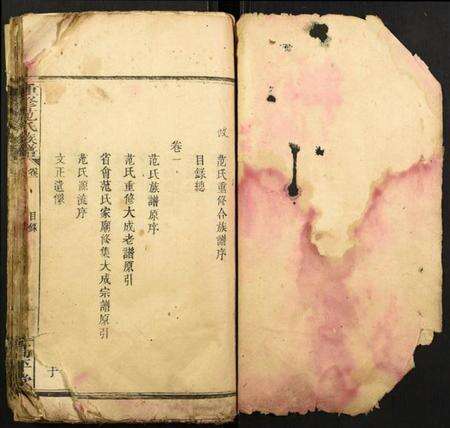 范氏重修合族譜序
目錄總
卷一
范氏族譜原序
范氏重修大成老譜原引
省會范氏家廟修集大成宗譜原引
范氏源流序
文正遺像
氏族譜
卷
目錄